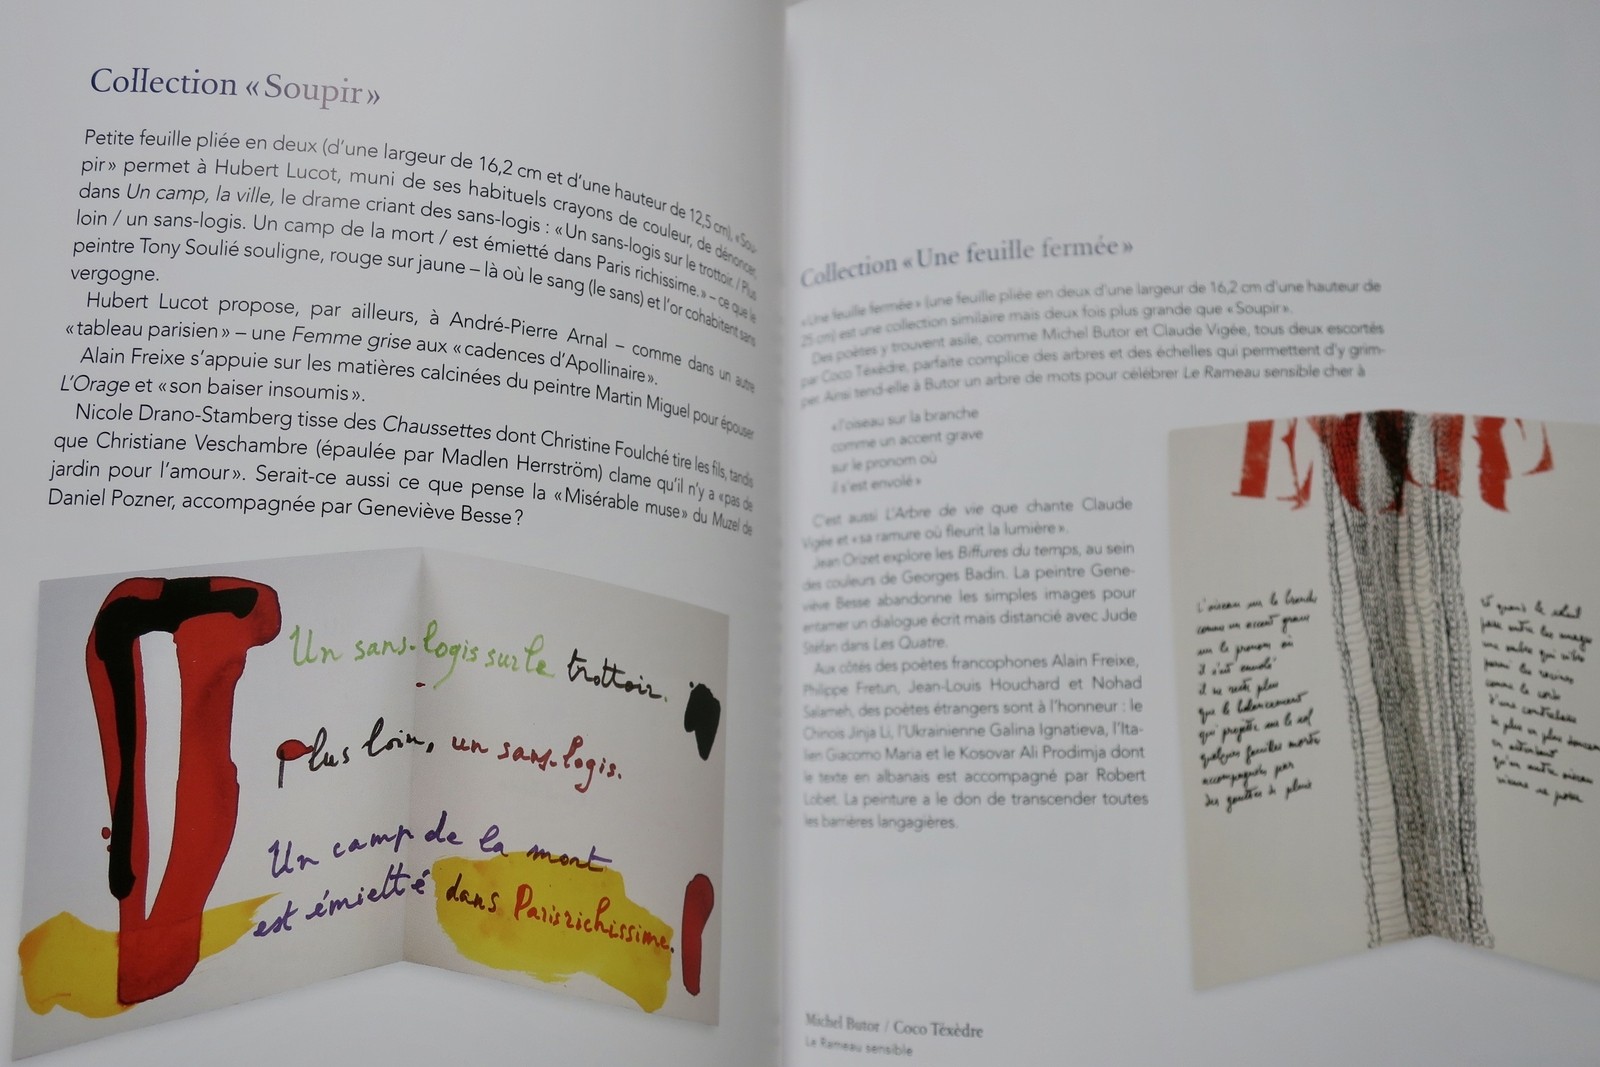 Collection « Soupir »
Petite feuille pliée en deux (d'une largeur de 16,2 cm et d'une hauteur de 12,5 cm), « Sou-
pir » permet à Hubert Lucot, muni de ses habituels crayons de couleur, de dénoncer,
dans Un camp, la ville, le drame criant des sans-logis : « Un sans-logis sur le trottoir. / Plus
loin / un sans-logis. Un camp de la mort / est émietté dans Paris richissime. » – ce que le
peintre Tony Soulié souligne, rouge sur jaune – là où le sang (le sans) et l'or cohabitent sans
vergogne.
Hubert Lucot propose, par ailleurs, à André-Pierre Arnal – comme dans un autre
« tableau parisien » – une Femme grise aux « cadences d'Apollinaire ».
Alain Freixe s'appuie sur les matières calcinées du peintre Martin Miguel pour épouser
L'Orage et « son baiser insoumis ».
Nicole Drano-Stamberg tisse des Chaussettes dont Christine Foulché tire les fils, tandis
que Christiane Veschambre (épaulée par Madlen Herrström) clame qu'il n'y a « pas de
jardin pour l'amour ». Serait-ce aussi ce que pense la « Misérable muse » du Muzel de
Daniel Pozner, accompagnée par Geneviève Besse ?
Un sans-logis sur le trottoir.
Plus loin, un sans-logis.
Un camp de la mort
est émietté dans Paris richissime.
Collection « Une feuille fermée »
« Une feuille fermée » (une feuille pliée en deux d'une largeur de 16,2 cm d'une hauteur de
25 cm) est une collection similaire mais deux fois plus grande que « Soupir ».
Des poètes y trouvent asile, comme Michel Butor et Claude Vigée, tous deux escortés
par Coco Téxèdre, parfaite complice des arbres et des échelles qui permettent d'y grim-
per. Ainsi tend-elle à Butor un arbre de mots pour célébrer Le Rameau sensible cher à
« l'oiseau sur la branche
comme un accent grave
sur le pronom où
il s'est envolé »
C'est aussi L'Arbre de vie que chante Claude
Vigée et « sa ramure où fleurit la lumière ».
Jean Orizet explore les Biffures du temps, au sein
des couleurs de Georges Badin. La peintre Gene-
viève Besse abandonne les simples images pour
entamer un dialogue écrit mais distancié avec Jude
Stéfan dans Les Quatre.
Aux côtés des poètes francophones Alain Freixe,
Philippe Fretun, Jean-Louis Houchard et Nohad
Salameh, des poètes étrangers sont à l'honneur : le
Chinois Jinja Li, l'Ukrainienne Galina Ignatieva, l'Ita-
lien Giacomo Maria et le Kosovar Ali Prodimja dont
le texte en albanais est accompagné par Robert
Lobet. La peinture a le don de transcender toutes
les barrières langagières.
L'oiseau sur la branche
comme un accent grave
sur le pronom où
il s'est envolé
il ne reste plus
que le balancement
qui projette sur le sol
quelques feuilles mortes
accompagnées par
des gouttes de pluie
Michel Butor / Coco Téxèdre
Le Rameau sensible